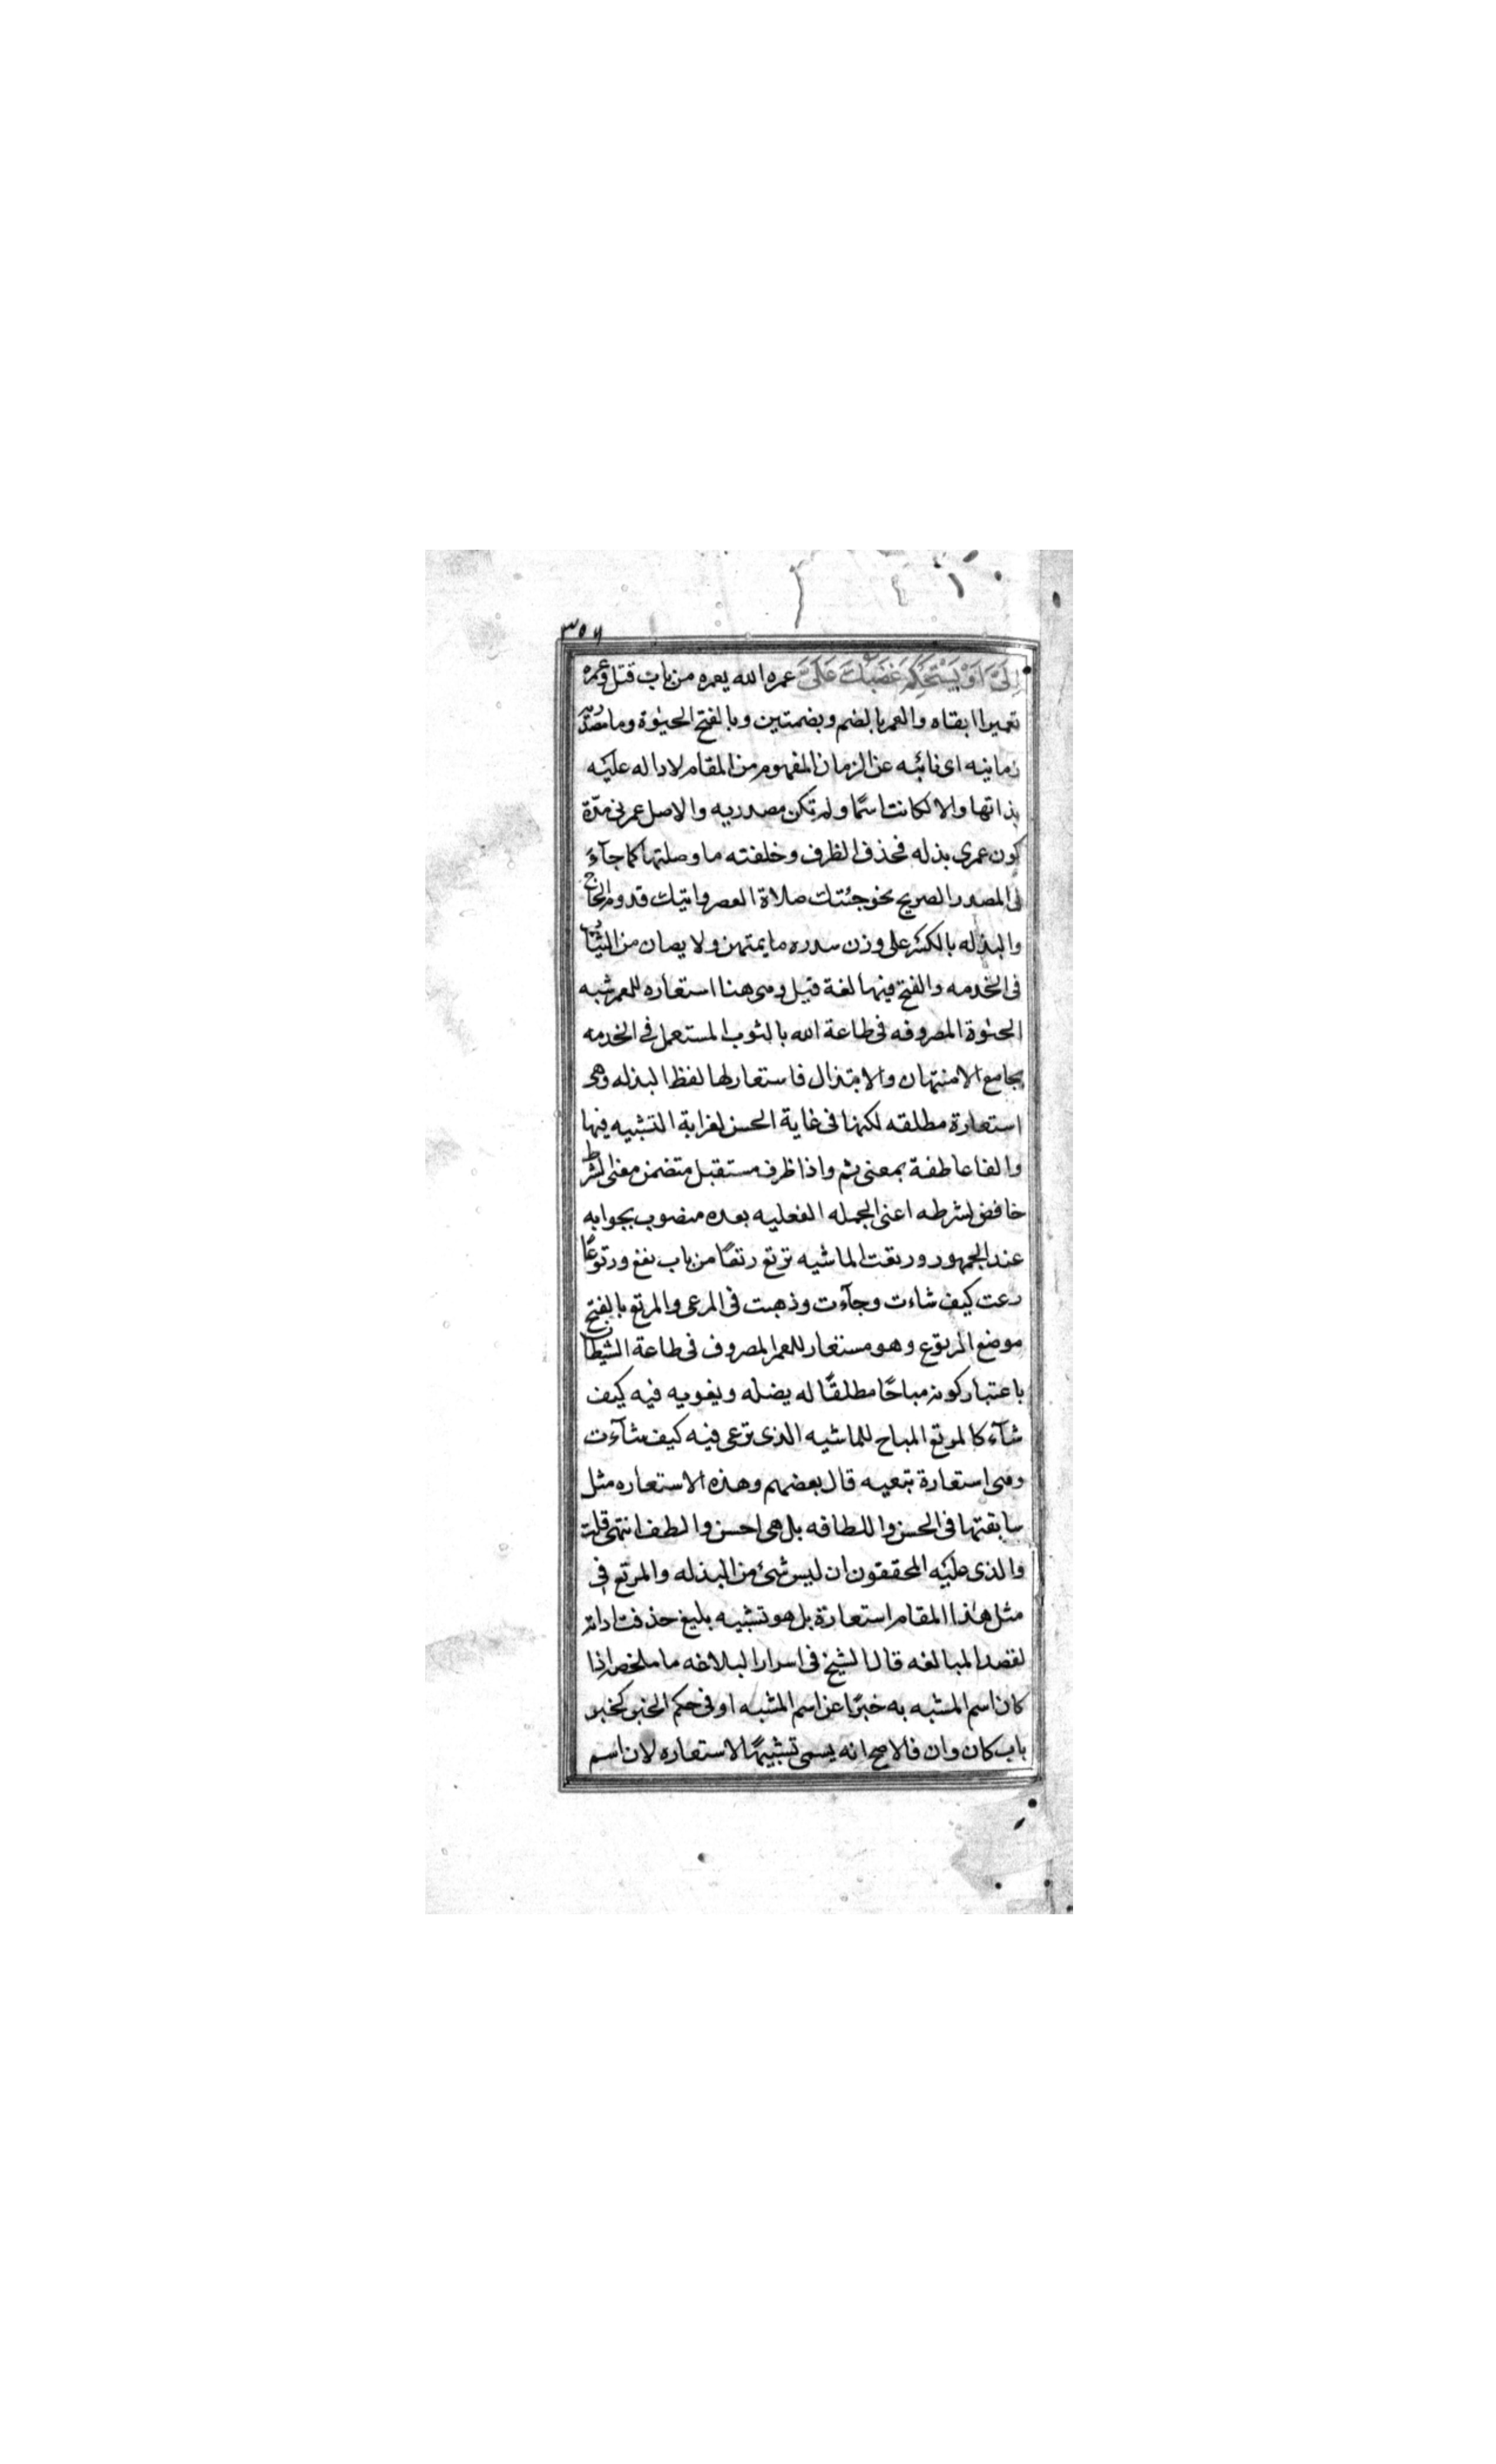 ٣٥٦
اِلَیَّ اَوْ یَسْتَحْکِمَ غَضَبُکَ عَلَیَّ عمره الله يعمره من باب قتل وعمره
تعميرا ابقاه والعمر بالضم وبضمتين وبالفتح الحيوة وما مصدريه
زمانيه اى نائبه عن الزمان المفهوم من المقام لا داله عليه
بذاتها والا لكانت اسمًا ولم تكن مصدريه والاصل عمرنى مدّة
كون عمرى بذله فحذف الظرف وخلفته ما وصلتها كما جآء
فى المصدر الصريح نحو جئتك صلاة العصر واتيك قدوم الحاج
والبذله بالكسر على وزن سدره ما يمتهن ولا يصان من الثياب
فى الخدمه والفتح فيها لغة قيل وهى هنا استعاره للعمر شبه
الحيوة المصروفه فى طاعة الله بالثوب المستعمل فى الخدمه
بجامع الامتهان والابتذال فاستعار لها لفظ البذله وهى
استعارة مطلقه لكنها فى غاية الحسن لغرابة التشبيه فيها
والفا عاطفة بمعنى ثم واذا ظرف مستقبل متضمن معنى الشرط
خافض لشرطه اعنى الجمله الفعليه بعده منصوب بجوابه
عند الجمهور ورتعت الماشيه ترتع رتعًا من باب نفع ورتوعًا
رعت كيف شاءت وجآءت وذهبت فى المرعى والمرتع بالفتح
موضع الرتوع وهو مستعار للعمر المصروف فى طاعة الشيطان
باعتبار كونه مباحًا مطلقًا له يضله ويغويه فيه كيف
شآء كالمرتع المباح للماشيه الذى ترعى فيه كيف شآءت
وهى استعارة تبعيه قال بعضهم وهذه الاستعاره مثل
سابقتها فى الحسن واللطافه بل هى احسن والطف انتهى قلت
والذى عليه المحققون ان ليس شئ من البذله والمرتع فى
مثل هذا المقام استعارة بل هو تشبيه بليغ حذفت اداته
لقصد المبالغه قال الشيخ فى اسرار البلاغه ما ملخصه اذا
كان اسم المشبه به خبرًا عن اسم المشبه او فى حكم الخبر كخبر
باب كان وان فالاصح انه يسمى تشبيهًا لا استعاره لان اسم